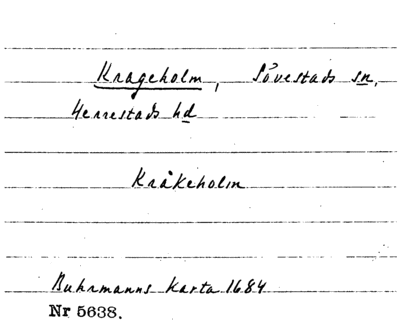 Krageholm, Sövestads sn,
Herrestads hd
Kråkeholm
Buhrmanns karta 1684
Nr 5638.